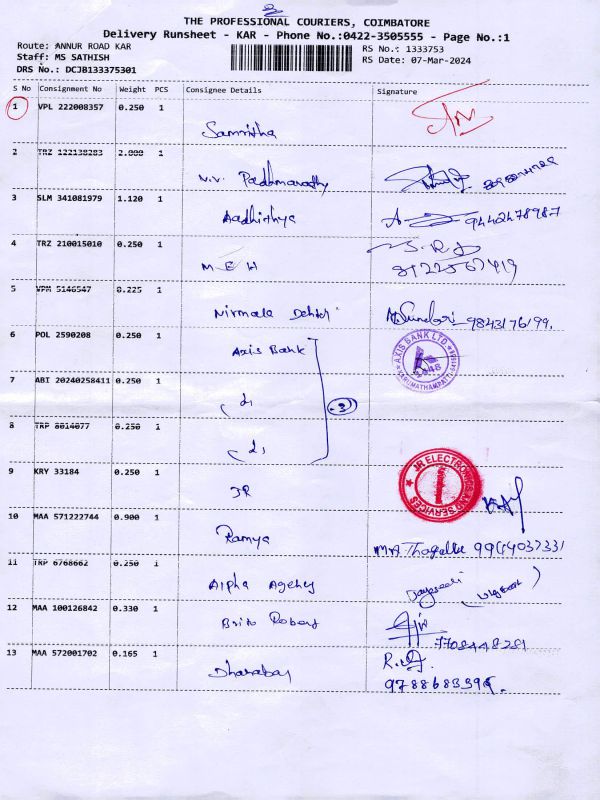 THE PROFESSIONAL COURIERS, COIMBATORE
Delivery Runsheet - KAR - Phone No.:0422-3505555 - Page No.:1
Route: ANNUR ROAD KAR RS No.: 1333753
Staff: MS SATHISH RS Date: 07-Mar-2024
DRS No.: DCJB133375301
S No Consignment No Weight PCS Consignee Details Signature
1 VPL 222008357 0.250 1
Samritha
2 TRZ 122138283 2.000 1
V.V. Padhmavathy
3 SLM 341081979 1.120 1
Aadhithya 9442478987
4 TRZ 210015010 0.250 1
M E H 8122567419
5 VPM 5146547 0.225 1
Nirmala Sundari 9843176199.
6 POL 2590208 0.250 1
Axis Bank
AXIS BANK LTD
KARUMATHAMPATTI
7 ABI 20240258411 0.250 1
3
8 TRP 8014077 0.250 1
9 KRY 33184 0.250 1
JR
JR ELECTRONICS AND SERVICES
10 MAA 571222744 0.900 1
Ramya
11 TRP 6768662 0.250 1
Alpha Agency
12 MAA 100126842 0.330 1
Brito Robert
7708448281
13 MAA 572001702 0.165 1